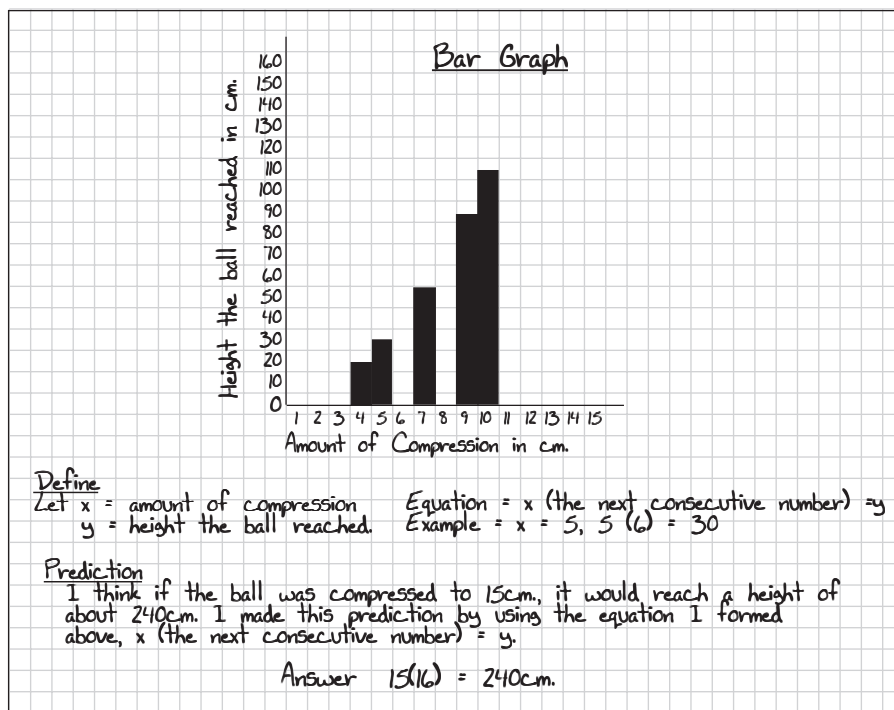 Bar Graph
Height the ball reached in cm.
160
150
140
130
120
110
100
90
80
70
60
50
40
30
20
10
0
1 2 3 4 5 6 7 8 9 10 11 12 13 14 15
Amount of Compression in cm.
Define
Let x = amount of compression
y = height the ball reached.
Equation = x (the next consecutive number) =y
Example = x = 5, 5 (6) = 30
Prediction
I think if the ball was compressed to 15cm., it would reach a height of
about 240cm. I made this prediction by using the equation I formed
above, x (the next consecutive number) = y.
Answer 15(16) = 240cm.